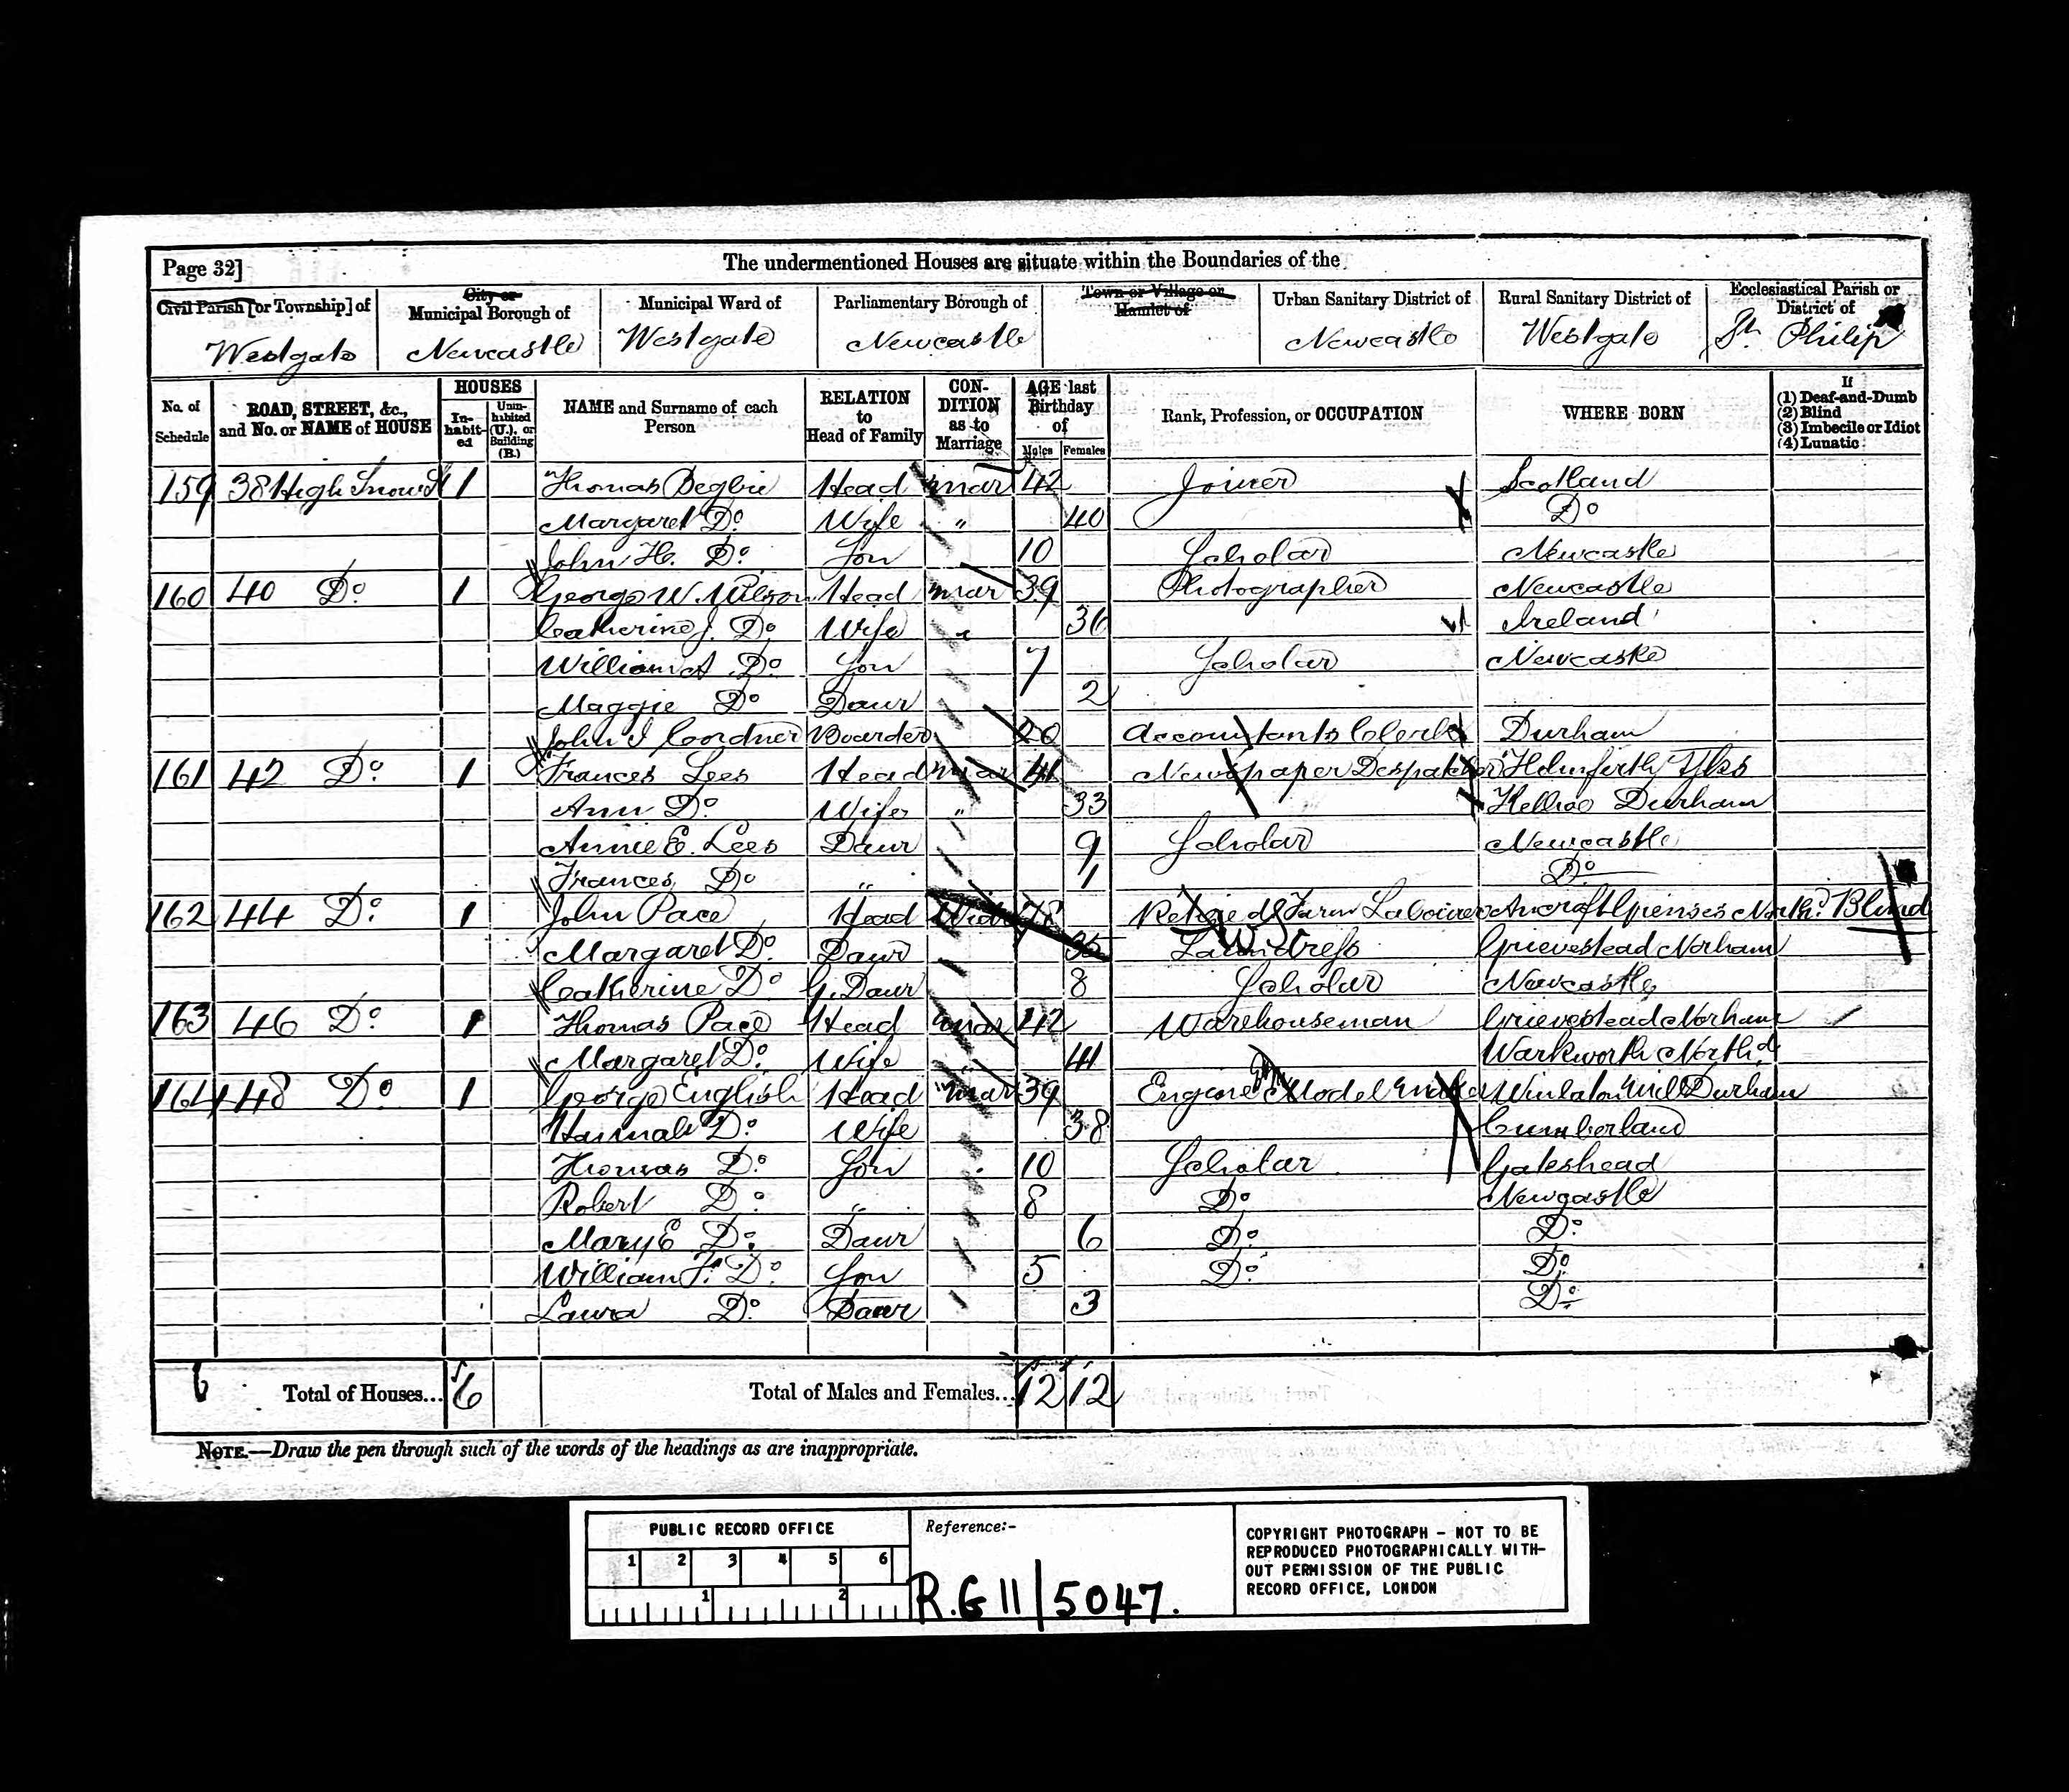 Page 32]
The undermentioned Houses are situate within the Boundaries of the
Civil Parish [or Township] of
City or Municipal Borough of
Municipal Ward of
Parliamentary Borough of
Town or Village or Hamlet of
Urban Sanitary District of
Rural Sanitary District of
Ecclesiastical Parish or District of
Westgate Newcastle Westgate Newcastle Newcastle Westgate St Philip
No. of Schedule
ROAD, STREET, &c., and No. or NAME of HOUSE
HOUSES
In-habit-ed
Unin-habited (U.), or Building (B.)
NAME and Surname of each Person
RELATION to Head of Family
CON-DITION as to Marriage
AGE last Birthday of
Males Females
Rank, Profession, or OCCUPATION
WHERE BORN
If
(1) Deaf-and-Dumb
(2) Blind
(3) Imbecile or Idiot
(4) Lunatic
159 38 High Snow St 1 Thomas Begbie Head mar 42 Joiner Scotland
Margaret Do Wife " 40 Do
John H. Do Son 10 Scholar Newcastle
160 40 Do 1 George W. Wilson Head mar 39 Photographer Newcastle
Catherine J. Do Wife " 36 Ireland
William A. Do Son 7 Scholar Newcastle
Maggie Do Daur 2
John I Cordner Boarder 20 Accountants Clerk Durham
161 42 Do 1 Frances Lees Head mar 41 Newspaper Despatcher Holmfirth Yks
Ann Do Wife " 33 Durham
Annie E. Lees Daur 9 Scholar Newcastle
Frances Do " 1 Do
162 44 Do 1 John Pace Head Wid 78 Retired Farm Labourer Northd Blind
Margaret Do Daur 35 Laundress Grievestead Norham
Catherine Do G. Daur 8 Scholar Newcastle
163 46 Do 1 Thomas Pace Head mar 42 Warehouseman Grievestead Norham
Margaret Do Wife 41 Warkworth Northd
164 48 Do 1 George English Head mar 39 Engine Model Maker Winlaton Mill Durham
Hannah Do Wife 38 Cumberland
Thomas Do Son 10 Scholar Gateshead
Robert Do " 8 Do Newcastle
Mary E Do Daur 6 Do Do
William F. Do Son 5 Do Do
Laura Do Daur 3 Do
6 Total of Houses... 6 Total of Males and Females... 12 12
NOTE.—Draw the pen through such of the words of the headings as are inappropriate.
PUBLIC RECORD OFFICE
1 2 3 4 5 6
1 2
Reference:-
R.G 11/5047.
COPYRIGHT PHOTOGRAPH - NOT TO BE
REPRODUCED PHOTOGRAPHICALLY WITH-
OUT PERMISSION OF THE PUBLIC
RECORD OFFICE, LONDON